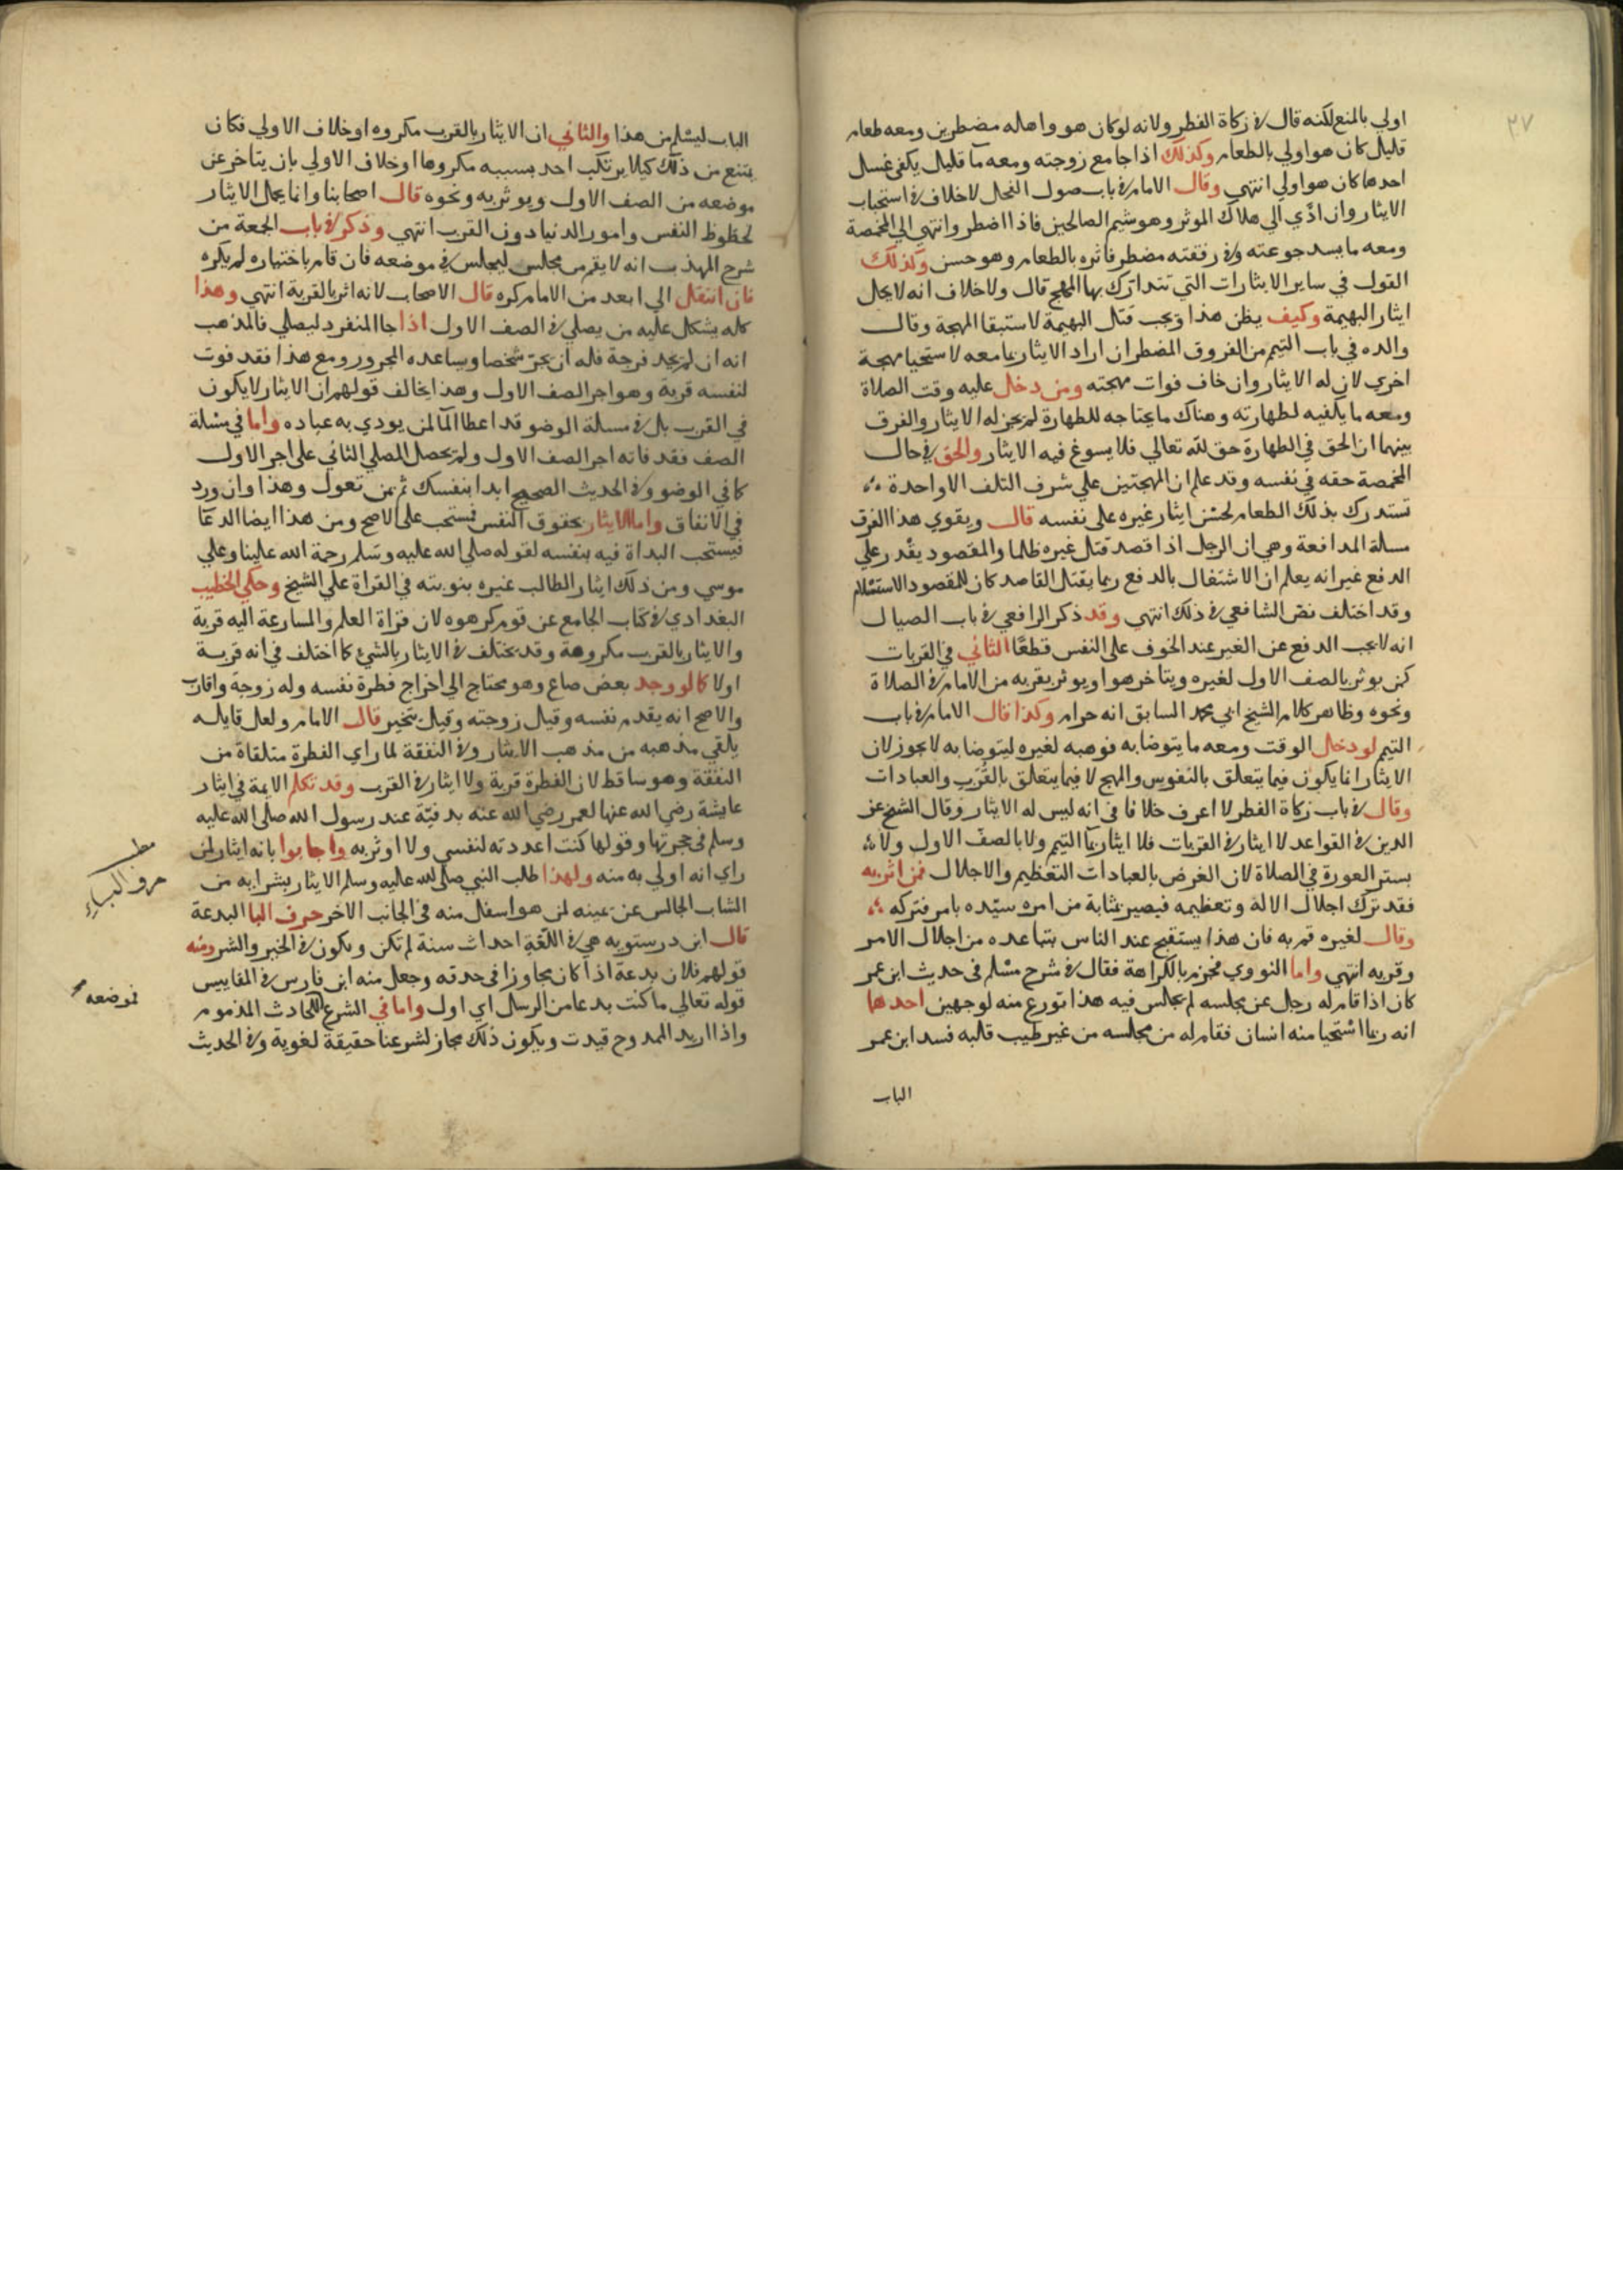 ٣٧
اولي بالمنع لكنه قال في زكاة الفطر ولانه لو كان هو واهله مضطرين ومعه طعام
قليل كان هو اولي بالطعام وكذلك اذا جامع زوجته ومعه ما قليل يكفي غسل
احدهما كان هو اولي انتهي وقال الامام في باب صول الفحل لا خلاف في استحباب
الايثار وان ادّي الي هلاك الموثر وهو شيم الصالحين فاذا اضطر وانتهي الي المخمصة
ومعه ما يسد جوعته وفي رفقته مضطر فاثره بالطعام وهو حسن وكذلك
القول في ساير الايثارات التي تتدارك بها المهج قال ولا خلاف انه لا يحل
ايثار البهيمة وكيف يظن هذا ويجب قتل البهيمة لاستبقا المهجة وقال
والده في باب التيمم من الفروق المضطر ان اراد الايثار بما معه لاستحيا مهجة
اخري لان له الايثار وان خاف فوات مهجته ومن دخل عليه وقت الصلاة
ومعه ما يكفيه لطهارته وهناك ما يحتاجه للطهارة لم يجز له الايثار والفرق
بينهما ان الحق في الطهارة حق لله تعالي فلا يسوغ فيه الايثار والحق في حال
المخمصة حقه في نفسه وقد علم ان المهجتين علي شرف التلف الا واحدة
تستدرك بذلك الطعام لحسن ايثار غيره على نفسه قال ويقوي هذا الفرق
مسلة المدافعة وهي ان الرجل اذا قصد قتل غيره ظلما والمقصود يقدر علي
الدفع غير انه يعلم ان الاشتغال بالدفع ربما يقتل القاصد كان للمقصود الاستسلام
وقد اختلف نص الشافعي في ذلك انتهي وقد ذكر الرافعي في باب الصيال
انه لا يجب الدفع عن الغير عند الخوف على النفس قطعًا الثاني في القربات
كمن يوثر بالصف الاول لغيره ويتاخر هو او يوثر بقربه من الامام في الصلاة
ونحوه وظاهر كلام الشيخ ابي محمد السابق انه حرام وكذا قال الامام في باب
التيمم لو دخل الوقت ومعه ما يتوضا به فوهبه لغيره ليتوضا به لا يجوز لان
الايثار انما يكون فيما يتعلق بالنفوس والمهج لا فيما يتعلق بالقُرَب والعبادات
وقال في باب زكاة الفطر لا اعرف خلافا في انه ليس له الايثار وقال الشيخ عز
الدين في القواعد لا ايثار في القربات فلا ايثار بما التيمم ولا بالصف الاول ولا
بستر العورة في الصلاة لان الغرض بالعبادات التعظيم والاجلال فمن اثر به
فقد ترك اجلال الاله وتعظيمه فيصير بمثابة من امره سيّده بامر فتركه
وقال لغيره قم به فان هذا يستقبح عند الناس بتباعده من اجلال الامر
وقربه انتهي واما النووي فجزم بالكراهة فقال في شرح مسلم في حديث ابن عمر
كان اذا قام له رجل عن مجلسه لم يجلس فيه هذا تورع منه لوجهين احدهما
انه ربما استحيا منه انسان فقام له من مجلسه من غير طيب قلبه فسد ابن عمر
الباب
الباب ليسلم من هذا والثاني ان الايثار بالقرب مكروه او خلاف الاولي فكان
يمتنع من ذلك كيلا يرتكب احد بسببه مكروها او خلاف الاولي بان يتاخر عن
موضعه من الصف الاول ويوثر به ونحوه قال اصحابنا وانما يحمل الايثار
لحظوظ النفس وامور الدنيا دون القرب انتهي وذكر في باب الجمعة من
شرح المهذب انه لا يقم من مجلس ليجلس في موضعه فان قام باختياره لم يكره
فان انتقل الي ابعد من الامام كره قال الاصحاب لانه اثر بالقربة انتهي وهذا
كله يشكل عليه من يصلي في الصف الاول اذا جا المنفرد ليصلي فالمذهب
انه ان لم يجد فرجة فله ان يجرّ شخصا ويساعده المجرور ومع هذا فقد فوت
لنفسه قربة وهو اجر الصف الاول وهذا يخالف قولهم ان الايثار لا يكون
في القرب بل في مسلة الوضو قد اعطا الما لمن يودي به عباده واما في مسلة
الصف فقد فاته اجر الصف الاول ولم يحصل للمصلي الثاني على اجر الاول
كما في الوضو وفي الحديث الصحيح ابدا بنفسك ثم بمن تعول وهذا وان ورد
في الانفاق واما الايثار بحقوق النفس فيستحب على الاصح ومن هذا ايضا الدعا
فيستحب البداة فيه بنفسه لقوله صلي الله عليه وسلم رحمة الله علينا وعلي
موسي ومن ذلك ايثار الطالب غيره بنوبته في القراة علي الشيخ وحكي الخطيب
البغدادي في كتاب الجامع عن قوم كرهوه لان قراة العلم والمسارعة اليه قربة
والايثار بالقرب مكروهة وقد يختلف في الايثار بالشي كما اختلف في انه قربة
اولا كما لو وجد بعض صاع وهو محتاج الي اخراج فطرة نفسه وله زوجة واقارب
والاصح انه يقدم نفسه وقيل زوجته وقيل يتخير قال الامام ولعل قايله
يلقي مذهبه من مذهب الايثار وفي النفقة لما راي الفطرة متلقاة من
النفقة وهو ساقط لان الفطرة قربة ولا ايثار في القرب وقد تكلم الايمة في ايثار
عايشة رضي الله عنها لعمر رضي الله عنه بدفنه عند رسول الله صلى الله عليه
وسلم في حجرتها وقولها كنت اعددته لنفسي ولا اوثر به واجابوا بانه ايثار لمن
راي انه اولي به منه ولهذا طلب النبي صلى الله عليه وسلم الايثار بشرابه من
الشاب الجالس عن يمينه لمن هو اسفل منه في الجانب الاخر حرف البا البدعة
قال ابن درستويه هي في اللغة احداث سنة لم تكن وتكون في الخير والشر ومنه
قولهم فلان بدعة اذا كان مجاوزا في حدقه وجعل منه ابن فارس في المقاييس
قوله تعالي ما كنت بدعا من الرسل اي اول واما في الشرع للحادث المذموم
واذا اريد الممدوح قيدت ويكون ذلك مجاز لشرعنا حقيقة لغوية وفي الحديث
مطلب
حرف الباء
فموضعه